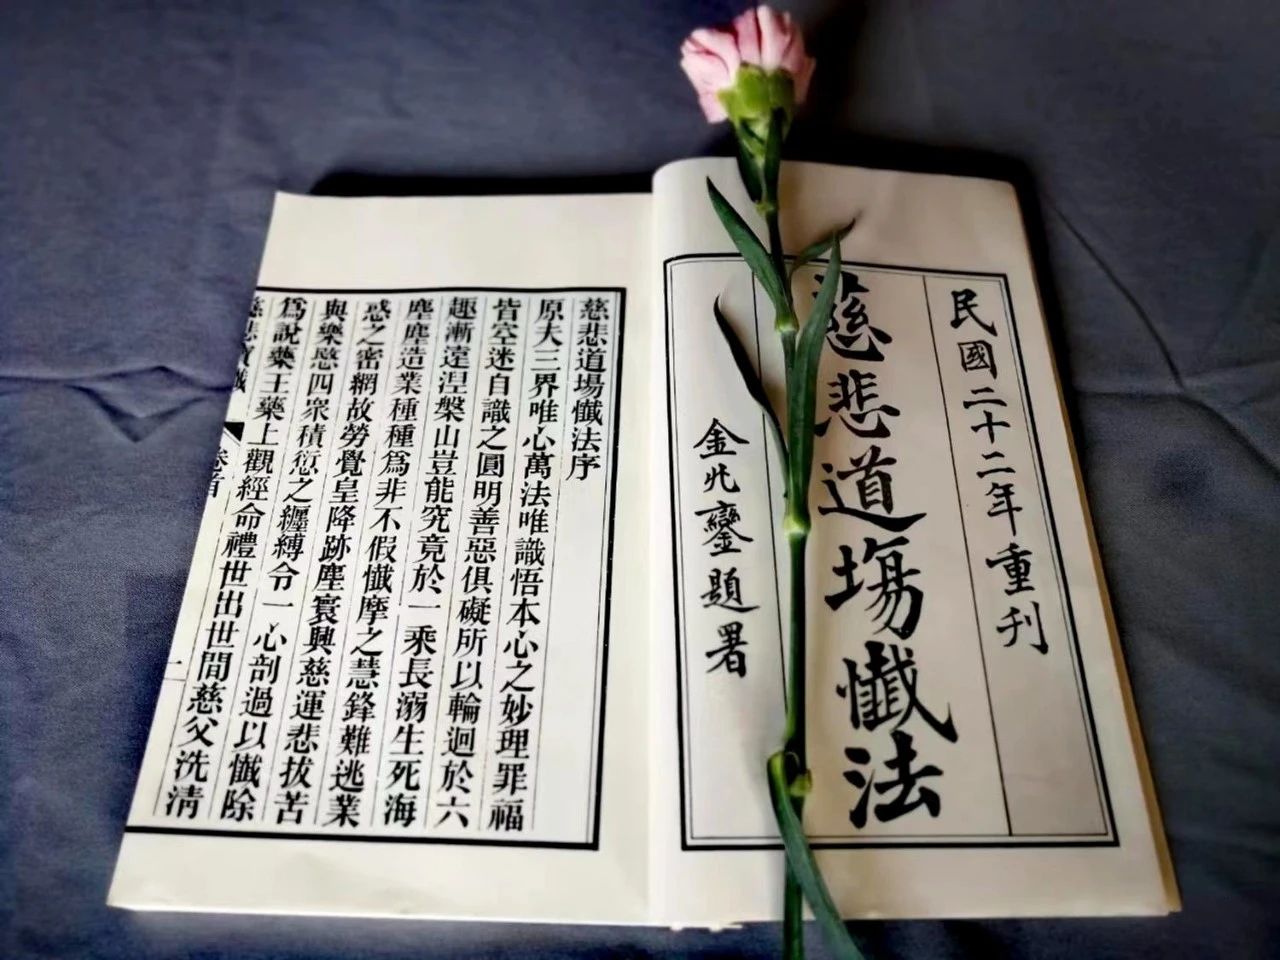 民國二十二年重刊
慈悲道塲懺法
金兆鑾題署
慈悲道場懺法序
原夫三界唯心萬法唯識悟本心之妙理罪福
皆空迷自識之圓明善惡俱礙所以輪迴於六
趣漸遠涅槃山豈能究竟於一乘長溺生死海
塵塵造業種種爲非不假懺摩之慧鋒難逃業
惑之密網故勞覺皇降跡塵寰興慈運悲拔苦
與樂愍四衆積愆之纏縛令一心剖過以懺除
爲說藥王藥上觀經命禮世出世間慈父洗清
慈悲寶懺 卷首 二